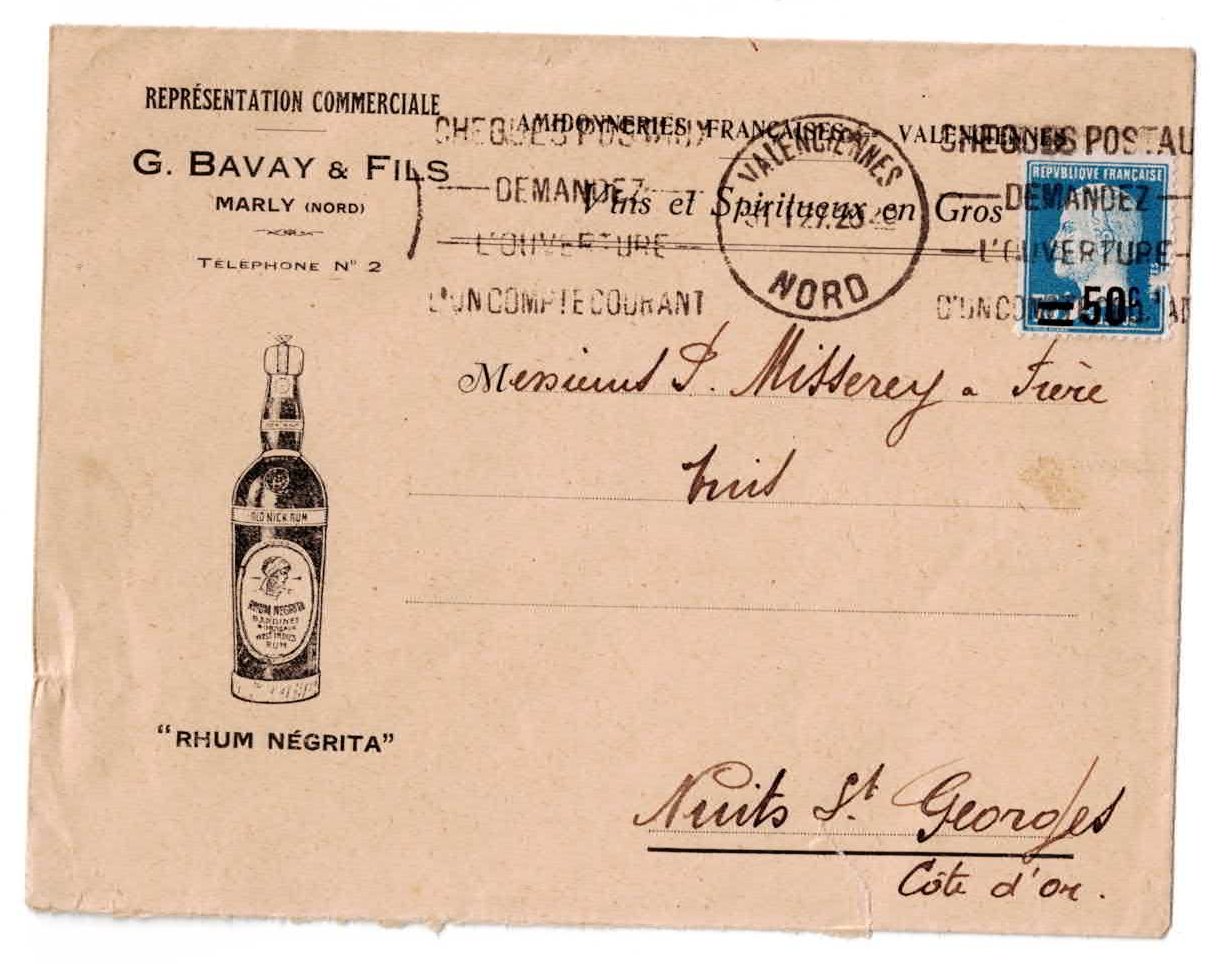 REPRÉSENTATION COMMERCIALE
G. BAVAY & FILS
MARLY (NORD)
TÉLÉPHONE N° 2
AMIDONNERIES FRANÇAISES — VALENCIENNES
Vins et Spiritueux en Gros
CHEQUES POSTAUX
DEMANDEZ
L'OUVERTURE
D'UN COMPTE COURANT
VALENCIENNES
NORD
CHEQUES POSTAU
DEMANDEZ
L'OUVERTURE
REPVBLIQVE FRANÇAISE
=50c.
Messieurs P. Misserey & Frère
Nuits St. Georges
Côte d'or.
RED NICK RUM
RHUM NEGRITA
BARDINET
WEST INDIES
RUM
"RHUM NÉGRITA"